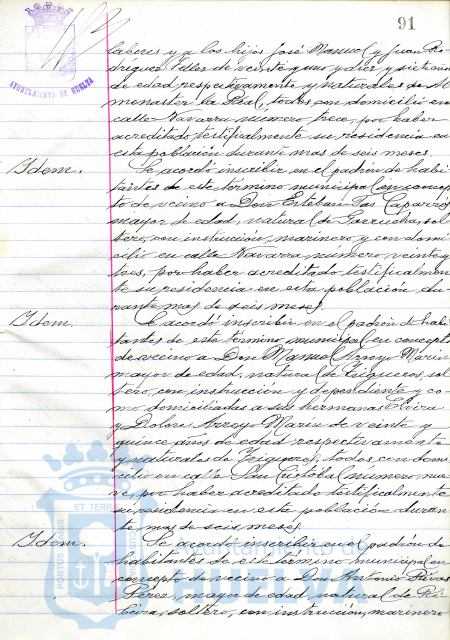 91
AYUNTAMIENTO DE HUELVA
laberes y a los hijos José Manuel y Juan Ro-
dríguez Felles de veinte y uno y diez y siete años
de edad respectivamente y naturales de Al-
monaster la Real, todos con domicilio en
calle Navarra número trece, por haber
acreditado testificalmente su residencia en
esta población durante mas de seis meses.
Idem.
Se acordó inscribir en el padrón de habi-
tantes de este término municipal en concep-
to de vecino a Don Esteban Mas Caparrós
mayor de edad, natural de Garrucha, sol-
tero, con instrucción, marinero y con domi-
cilio en calle Navarra, número veinte y
tres, por haber acreditado testificalmen-
te su residencia en esta población, du-
rante mas de seis meses.
Idem.
Se acordó inscribir en el padrón de habi-
tantes de este término municipal en concepto
de vecino a Don Manuel Arroyo Marin
mayor de edad, natural de Trigueros, sol-
tero, con instrucción y dependiente y co-
mo domiciliadas a sus hermanas Elvira
y Dolores Arroyo Marin de veinte y
quince años de edad respectivamente
y naturales de Trigueros, todos con domi-
cilio en calle San Cristobal número nue-
ve, por haber acreditado testificalmente
su residencia en esta población duran-
te mas de seis meses.
Idem.
Se acordó inscribir en el padrón de
habitantes de este término municipal en
concepto de vecino a Don Antonio Rivas
Pérez, mayor de edad, natural de Ri-
beira, soltero, con instrucción, marinero